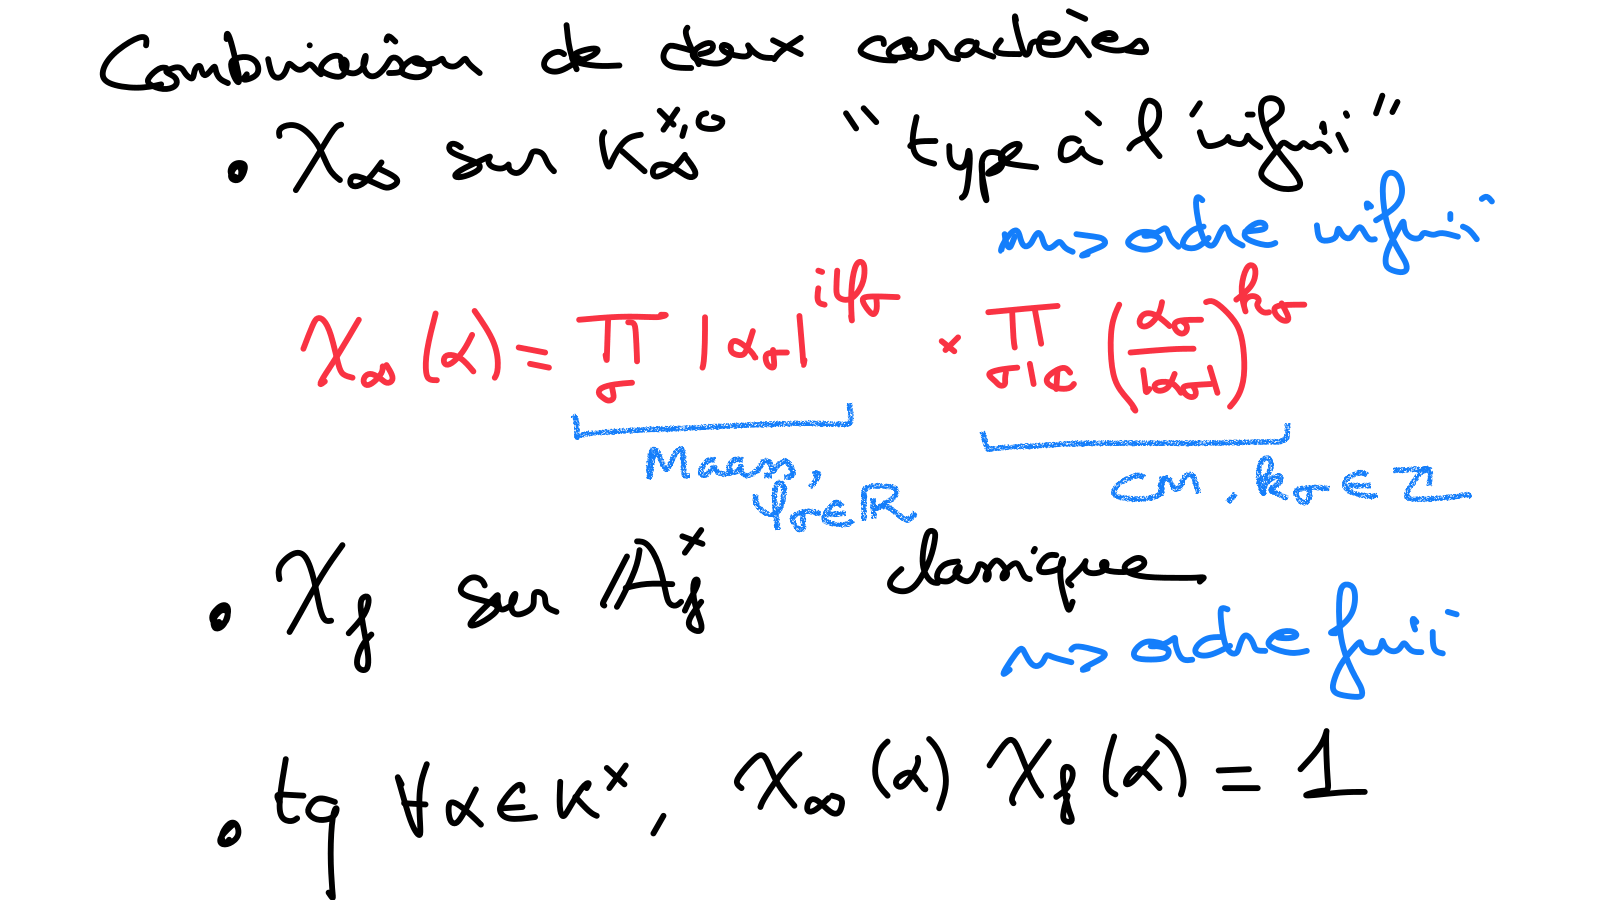 Combinaison de deux caractères
• χ∞ sur K∞^{×,0} "type à l'infini"
⇝ ordre infini
χ∞(α) = ∏_σ |α_σ|^{iφ_σ} × ∏_{σ|ℂ} (α_σ/|α_σ|)^{k_σ}
Maass, φ_σ∈ℝ
CM, k_σ∈ℤ
• χ_f sur 𝔸_f^× classique
⇝ ordre fini
• tq ∀α∈K^×, χ∞(α) χ_f(α) = 1